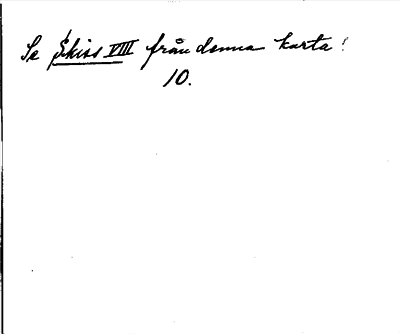 Se Skiss VIII från denna karta!
10.